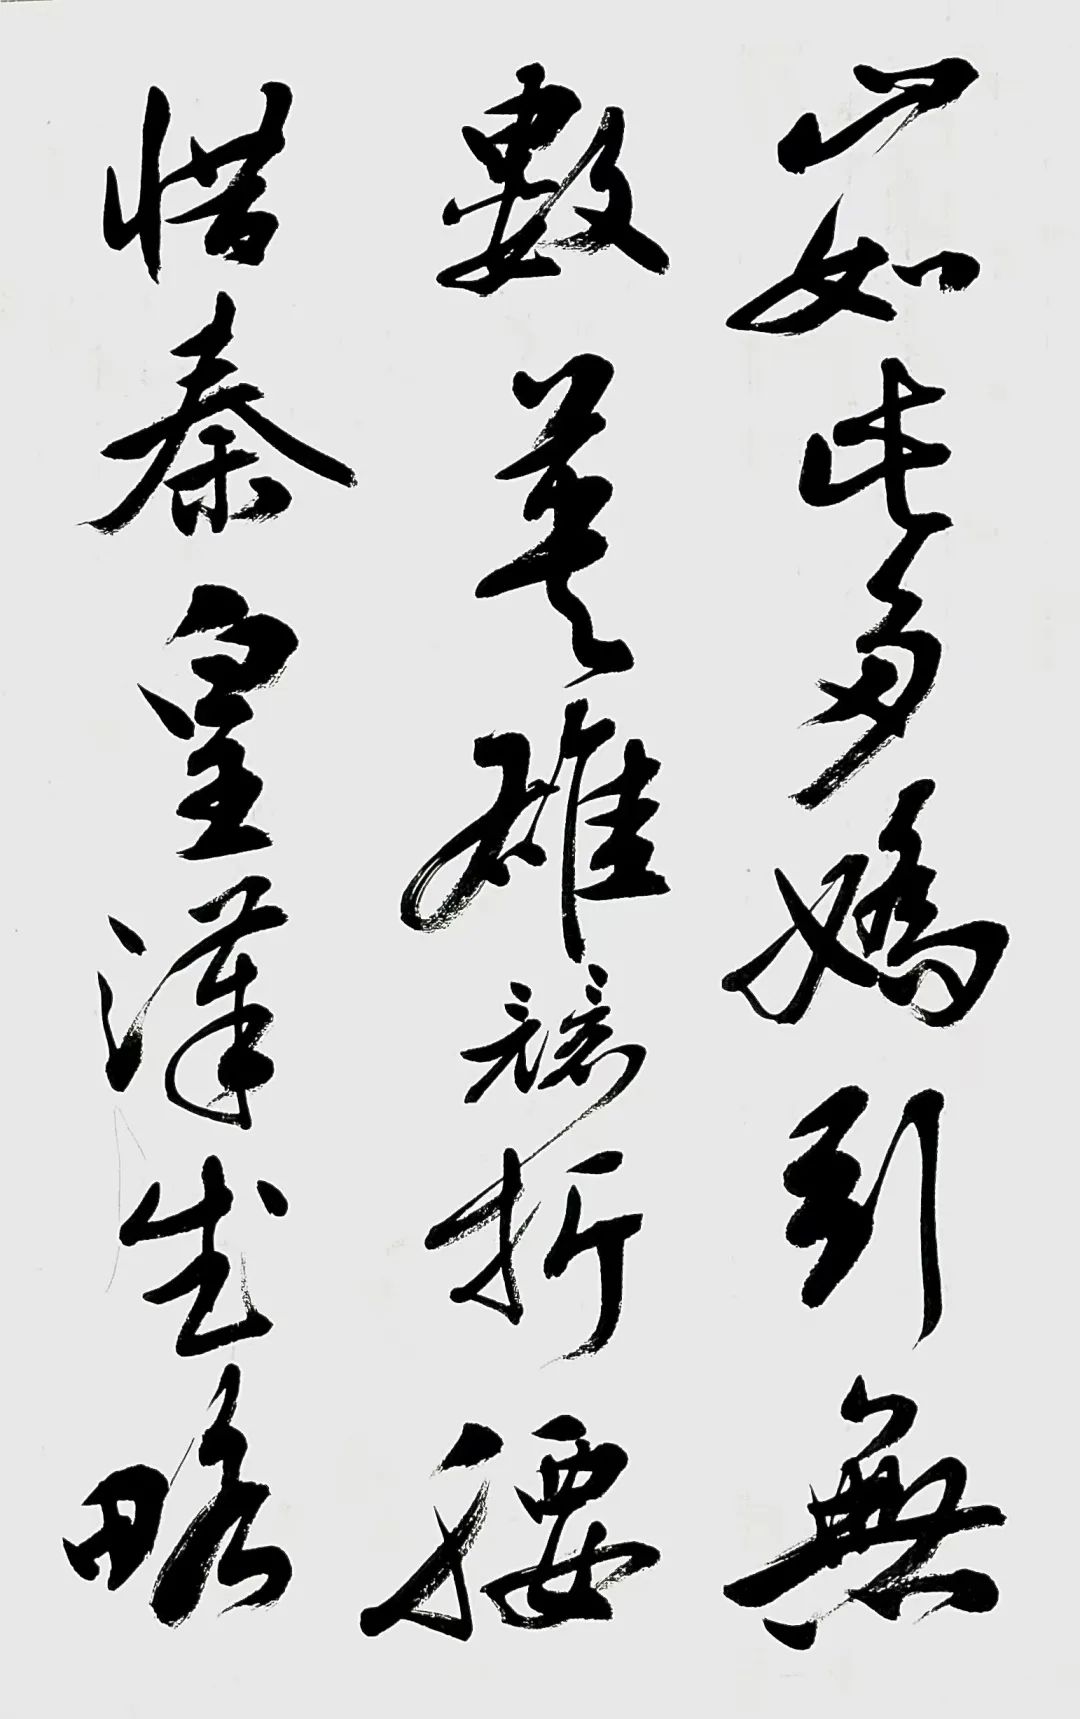 山如此多嬌引無
數英雄競折腰
惜秦皇漢武略